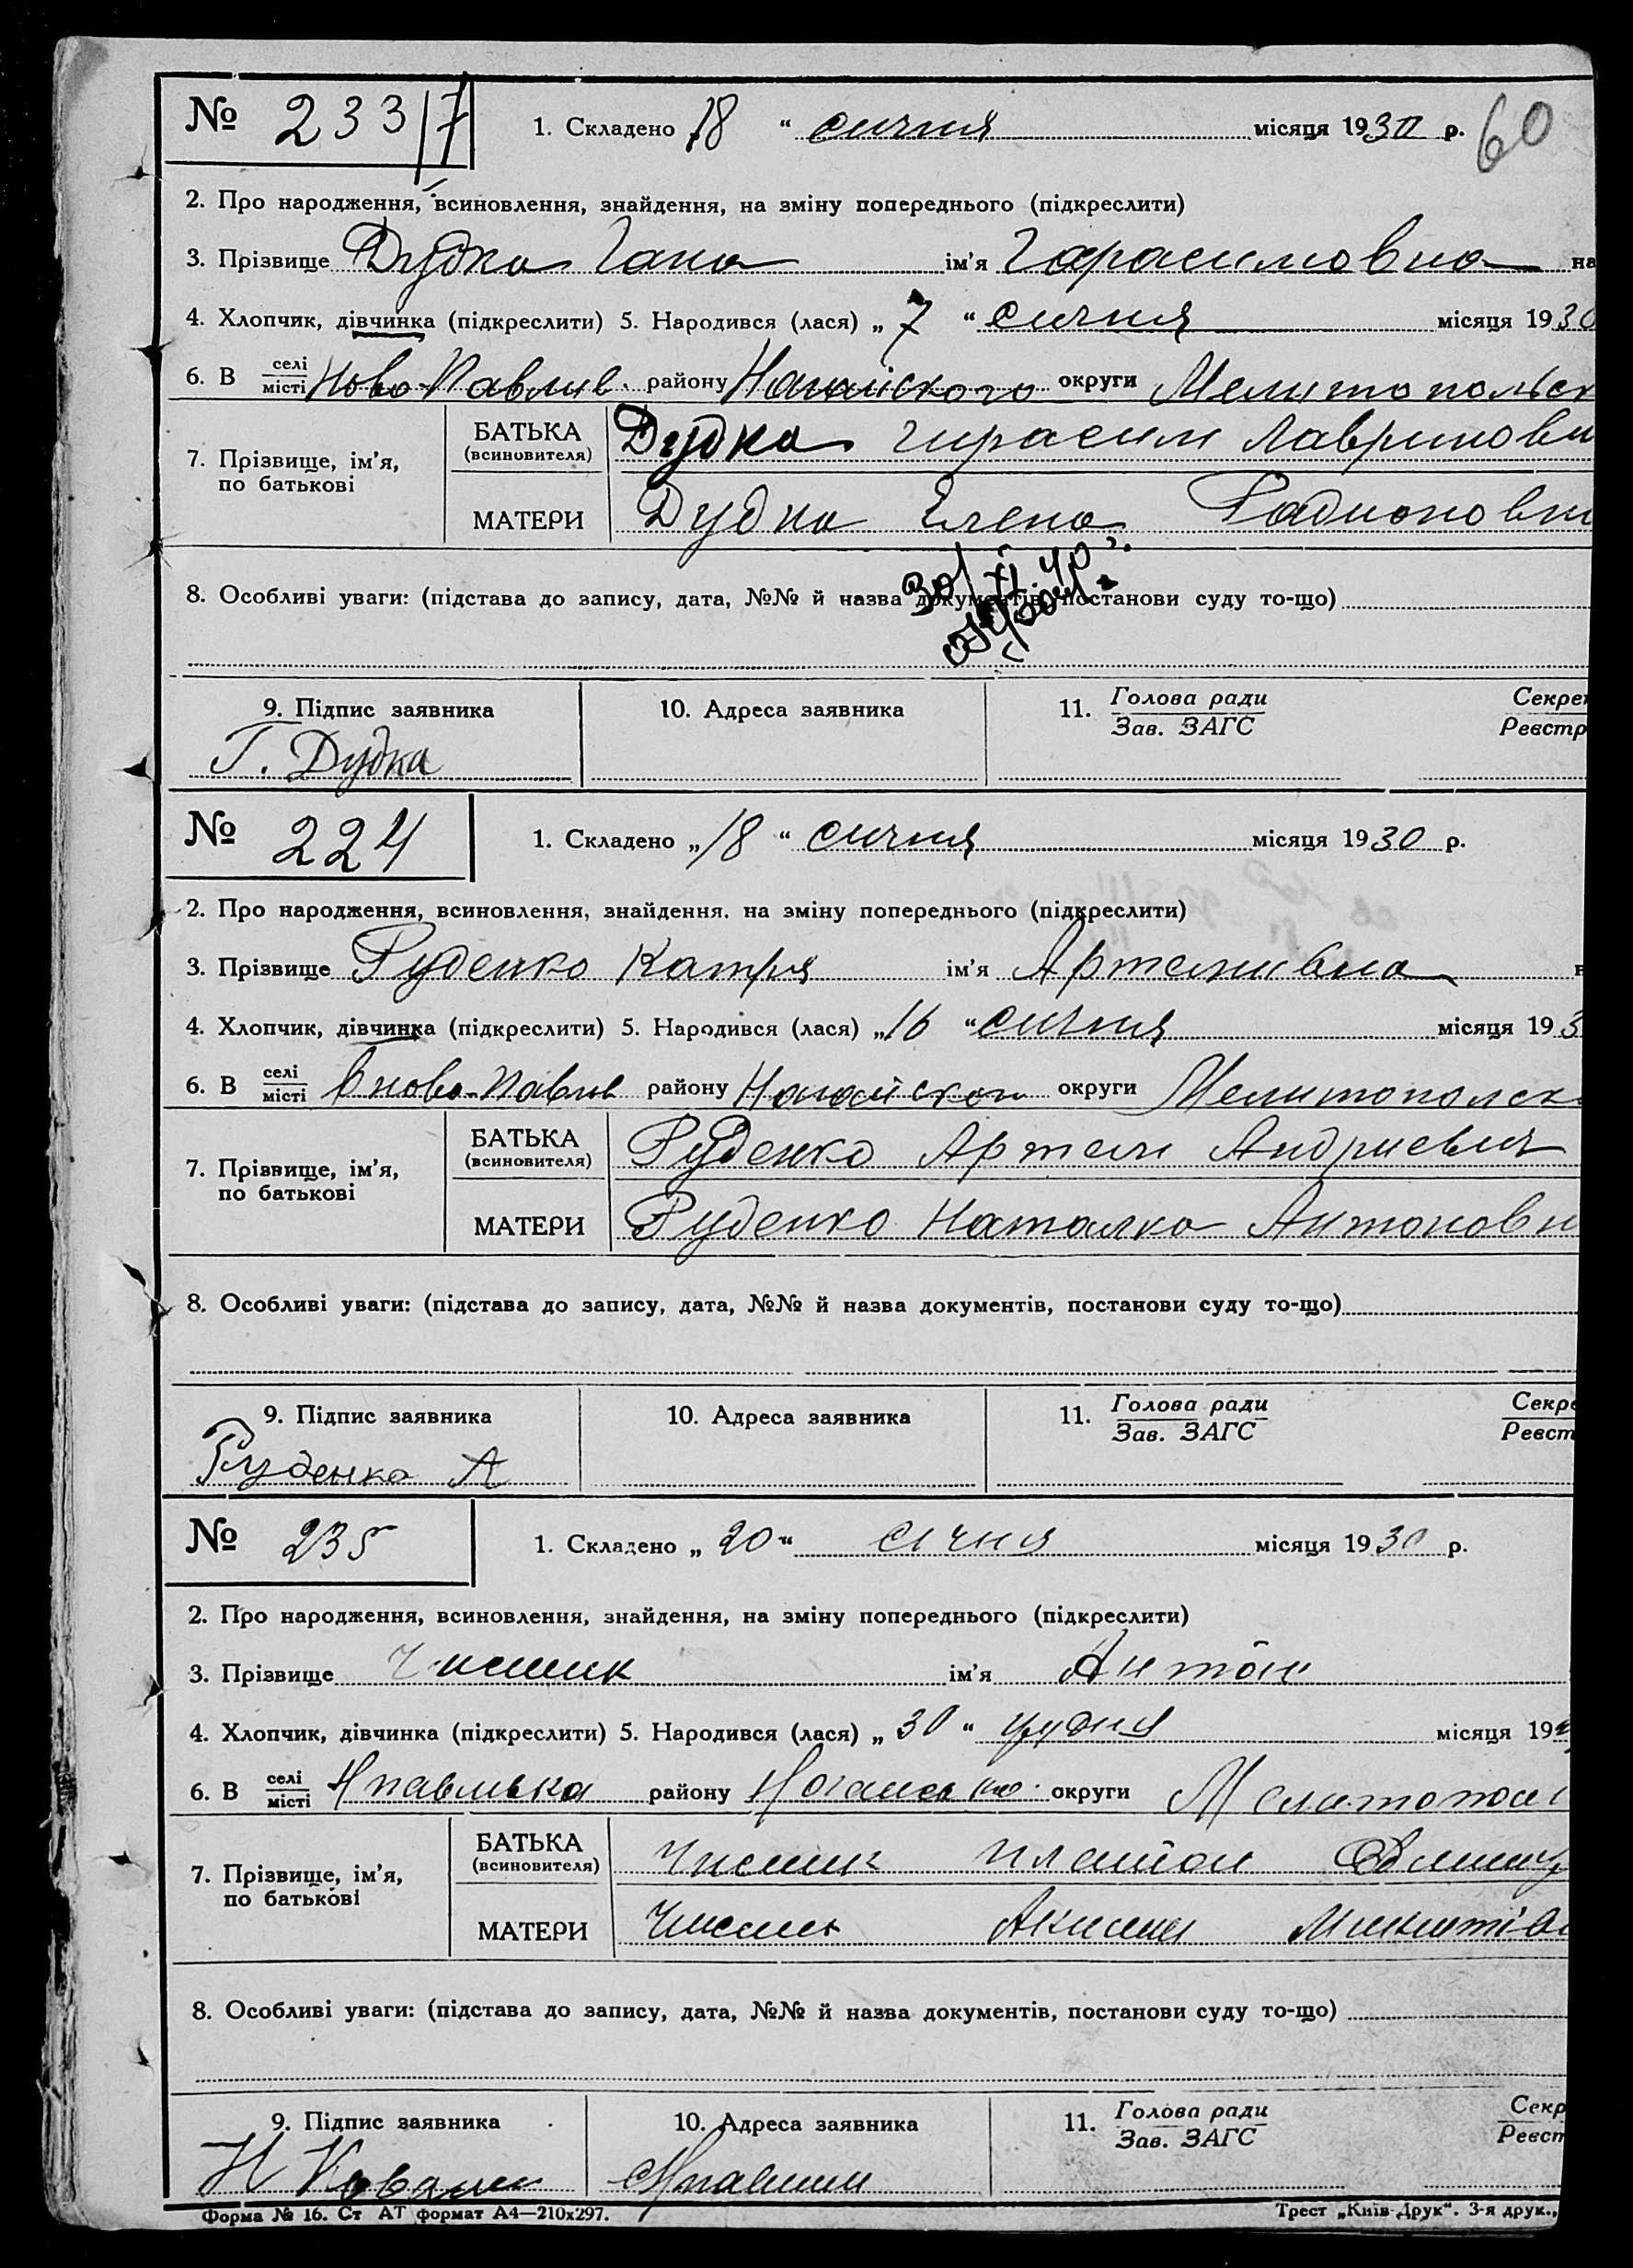 № 233/7 1. Складено 18 “ сичня місяця 1930 р. 60
2. Про народження, всиновлення, знайдення, на зміну попереднього (підкреслити)
3. Прізвище Дудка Гана ім'я Гарасимовна на
4. Хлопчик, дівчинка (підкреслити) 5. Народився (лася) „ 7 “ сичня місяця 1930
6. В селі/місті Ново-Павлив. району Нагайского округи Мелитопольск
БАТЬКА (всиновителя) Дудка Гирасим Лавринови
7. Прізвище, ім'я, по батькові
МАТЕРИ Дудка Елена Радионовн
8. Особливі уваги: (підстава до запису, дата, №№ й назва документів, постанови суду то-що)
9. Підпис заявника 10. Адреса заявника 11. Голова ради Секре
Зав. ЗАГС Реєстр
Г. Дудка
№ 224 1. Складено „ 18 “ сичня місяця 1930 р.
2. Про народження, всиновлення, знайдення. на зміну попереднього (підкреслити)
3. Прізвище Руденко Катря ім'я Артемивна н
4. Хлопчик, дівчинка (підкреслити) 5. Народився (лася) „ 16 “ сичня місяця 193
6. В селі/місті Вново-Павлов району Нагайског округи Мелитополск
БАТЬКА (всиновителя) Руденко Артем Андриевич
7. Прізвище, ім'я, по батькові
МАТЕРИ Руденко Наталка Антоновн
8. Особливі уваги: (підстава до запису, дата, №№ й назва документів, постанови суду то-що)
9. Підпис заявника 10. Адреса заявника 11. Голова ради Секре
Зав. ЗАГС Реєст
Руденко А
№ 235 1. Складено „ 20 “ січня місяця 1930 р.
2. Про народження, всиновлення, знайдення, на зміну попереднього (підкреслити)
3. Прізвище ім'я Антон
4. Хлопчик, дівчинка (підкреслити) 5. Народився (лася) „ 30 “ грудня місяця 19
6. В селі/місті Нпавливка району округи Мелитопол
БАТЬКА (всиновителя)
7. Прізвище, ім'я, по батькові
МАТЕРИ
8. Особливі уваги: (підстава до запису, дата, №№ й назва документів, постанови суду то-що)
9. Підпис заявника 10. Адреса заявника 11. Голова ради Секр
Зав. ЗАГС Реєст
Форма № 16. Ст АТ формат А4—210х297. Трест „Київ-Друк“. 3-я друк.,